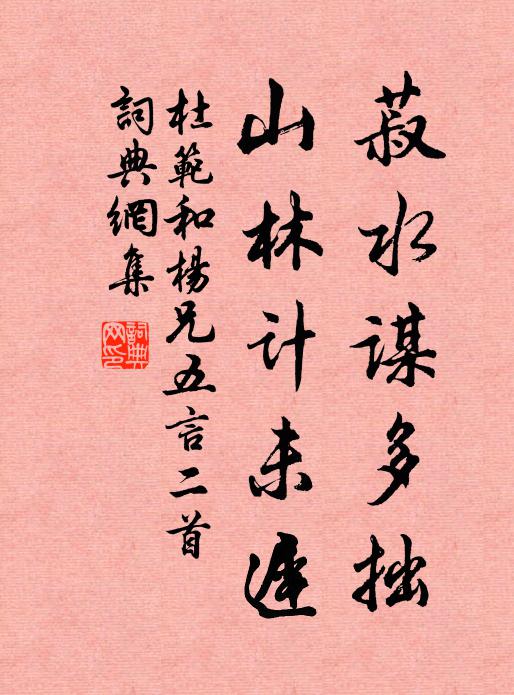 菽水謀多拙
山林計未遲
杜範和楊兄五言二首
詞典網集
詞典网印